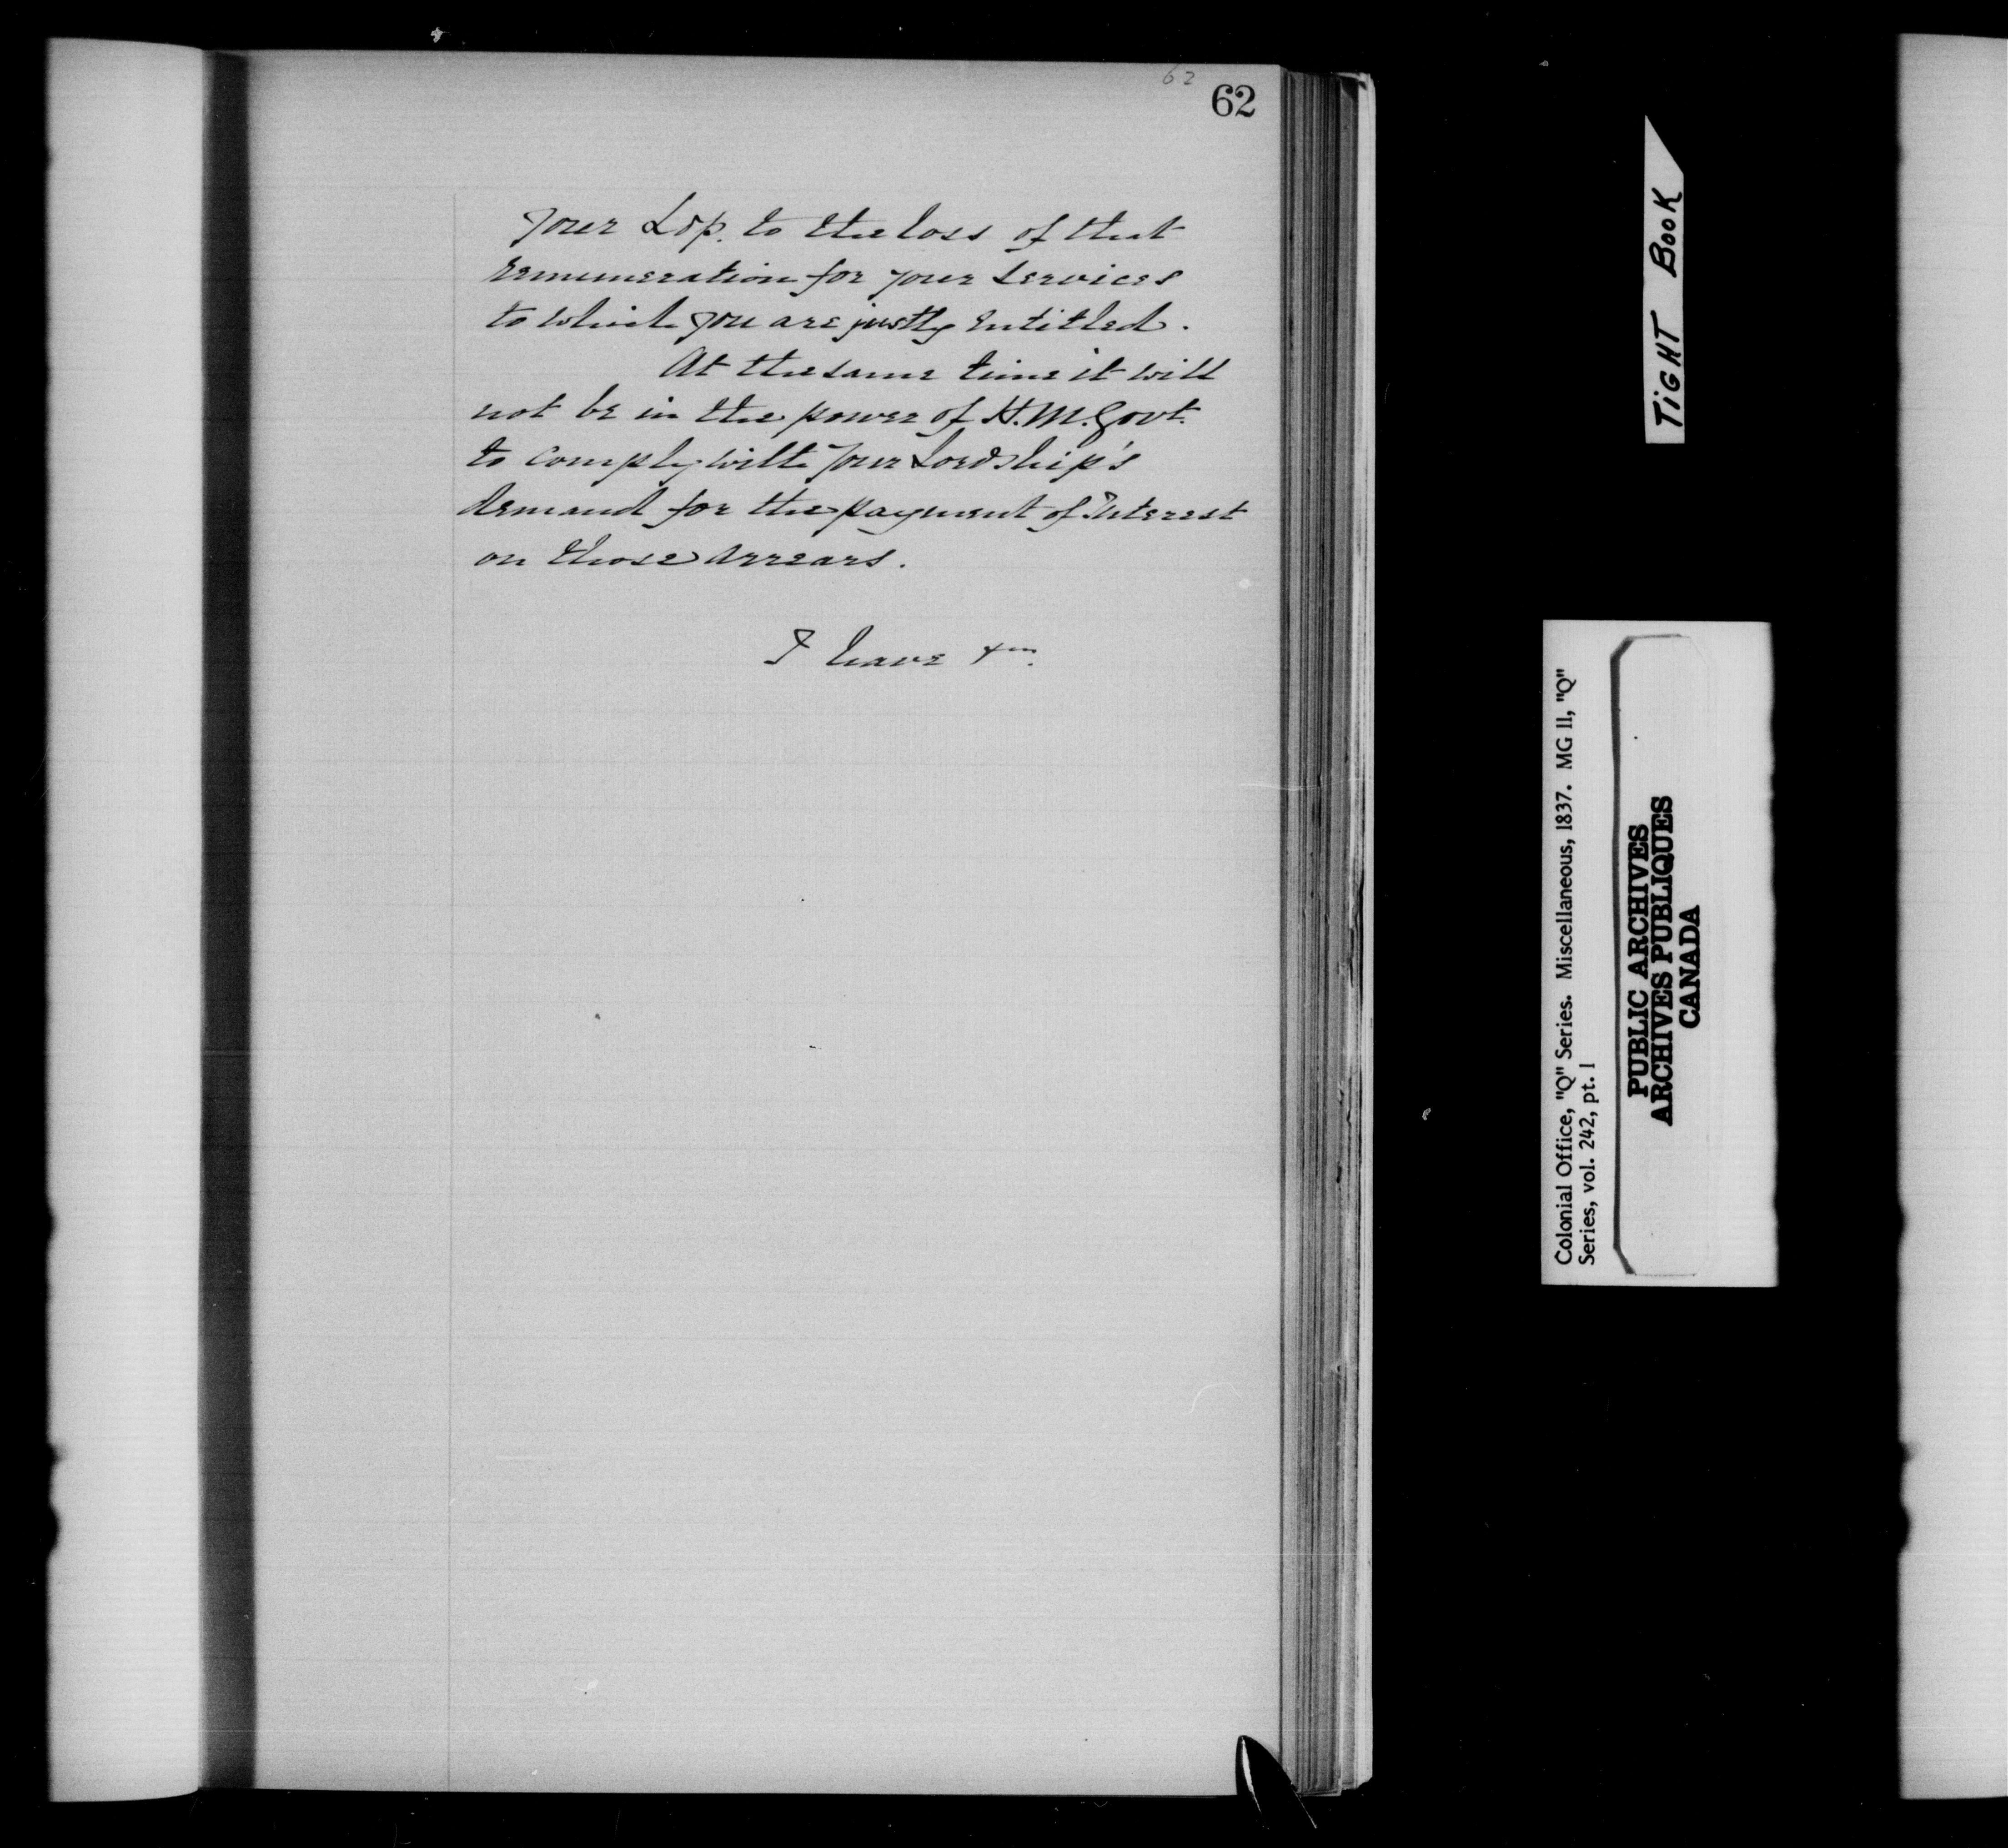 62
62
your Lop. to the loss of that
remuneration for your services
to which you are justly entitled.
At the same time it will
not be in the power of H.M. Govt.
to comply with your Lordship's
demand for the payment of Interest
on those arrears.
I have &c.
TIGHT BOOK
Colonial Office, "Q" Series. Miscellaneous, 1837. MG 11, "Q"
Series, vol. 242, pt. 1
PUBLIC ARCHIVES
ARCHIVES PUBLIQUES
CANADA